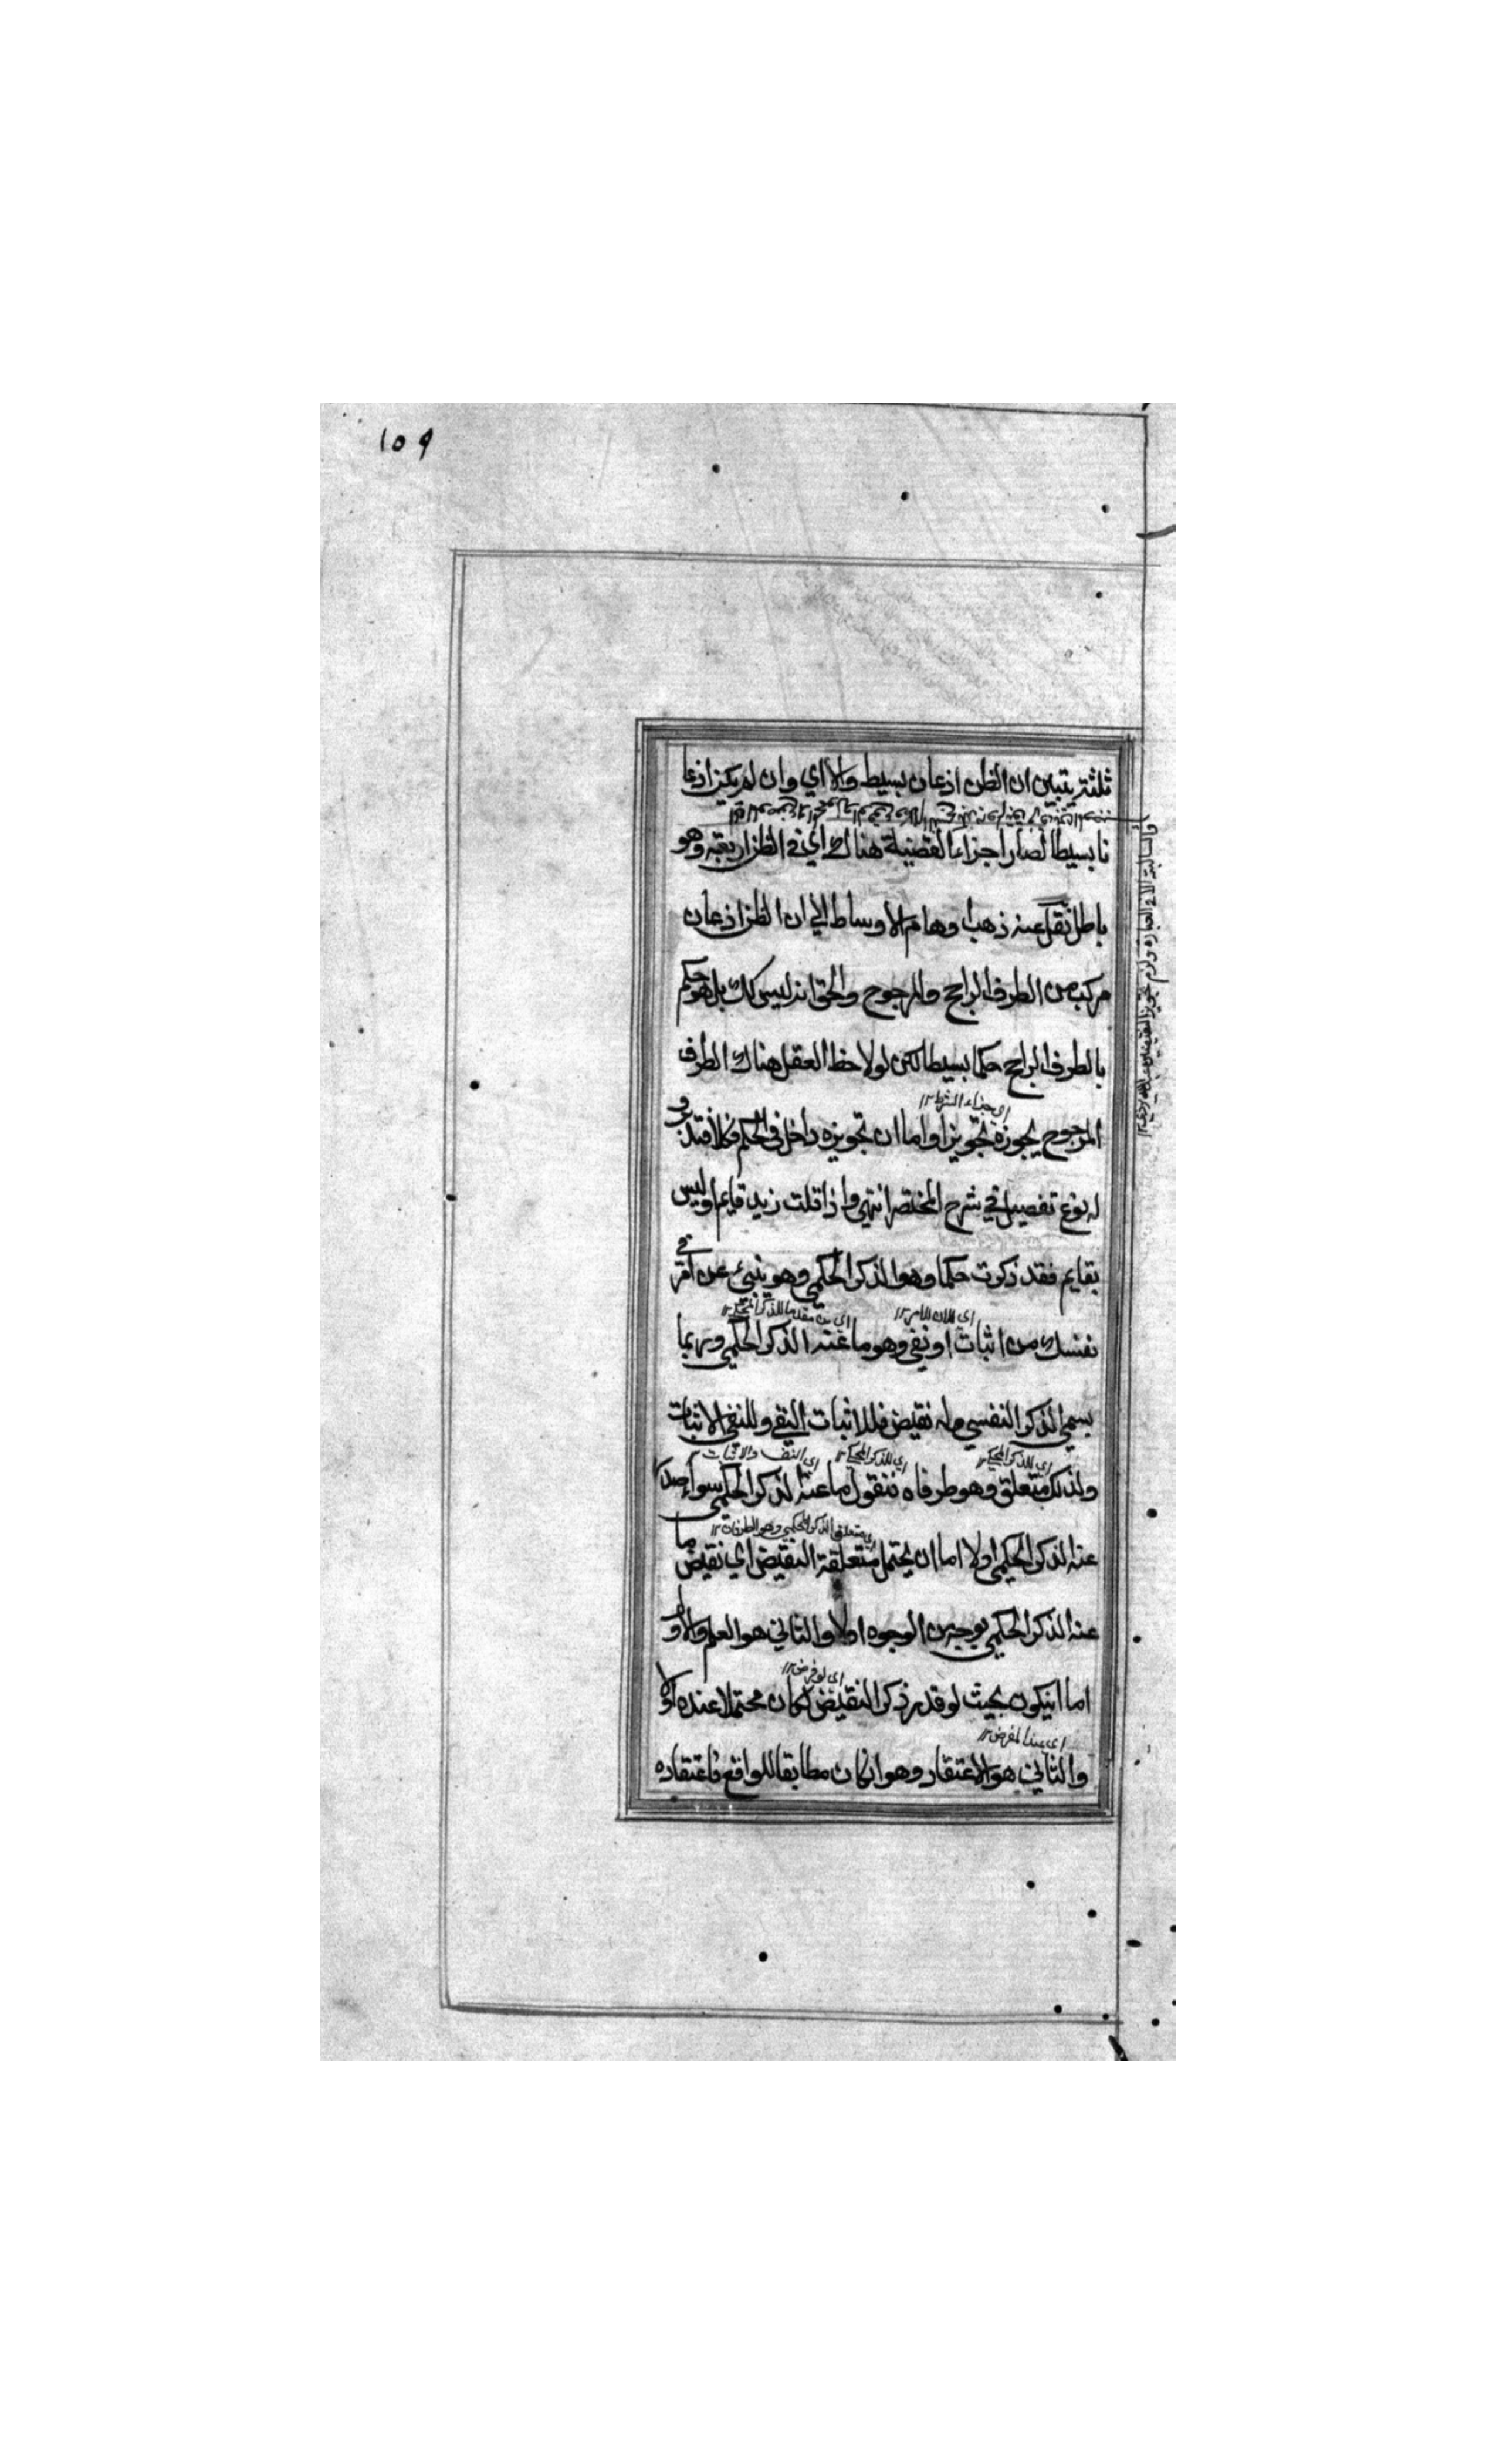 ١٥٩
ثلثة يتبين ان الظن اذعان بسيط والا اي وان لم يكن اذعا
نا بسيطا لصار اجزاء القضية هناك اي في الظن اربعة وهو
باطل نقل عنه ذهب اوهام الاوساط الي ان الظن اذعان
مركب من الطرف الراجح والمرجوح والحق انه ليس كك بل هو حكم
بالطرف الراجح حكما بسيطا لكن لو لاحظ العقل هناك الطرف
اي جزاء الشرط ١٢
المرجوح يجوزه تجويزا واما ان تجويزه داخل في الحكم فكلا فتدبر و
له نوع تفصيل في شرح المختصر انتهي واذا قلت زيد قايم او ليس
بقايم فقد ذكرت حكما وهو الذكر الحكمي وهو ينبئ عن امر في
نفسك من اثبات او نفي وهو ما عنه الذكر الحكمي وربما
يسمي الذكر النفسي وله نقيض فللاثبات النفي وللنفي الاثبات
اي للذكر الحكمي ١٢ اي للذكر الحكمي ١٢ اي النفي والاثبات
ولذلك متعلق وهو طرفاه فنقول ما عنه الذكر الحكمي سواء صدر
اي متعلق الذكر الحكمي وهو الطرفان ١٢
عنه الذكر الحكمي اولا اما ان يحتمل متعلقة النقيض اي نقيض ما
عنه الذكر الحكمي بوجه من الوجوه اولا والثاني هو العلم والاول
اي لو فرض ١٢
اما ان يكون بحيث لو قدر ذكر النقيض لكان محتملا عنده اولا
والثاني هو الاعتقاد وهو ان كان مطابقا للواقع فاعتقاده